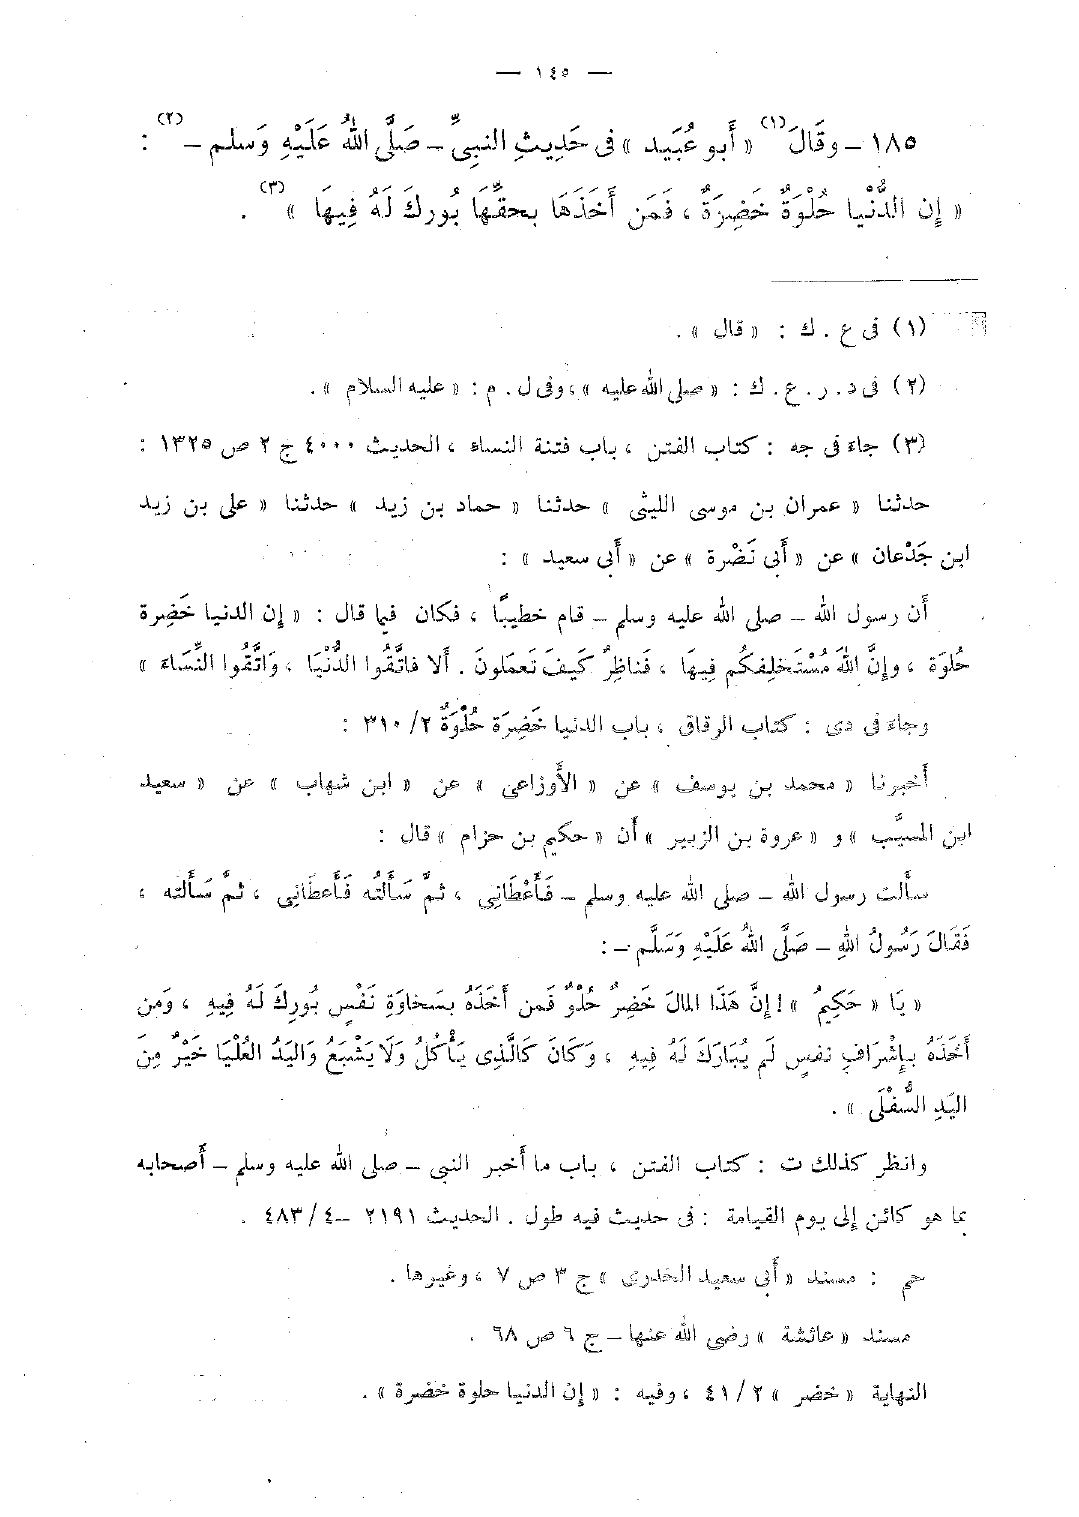 — ١٤٥ —
١٨٥ – وقَالَ (١) « أَبو عُبَيد » فى حَدِيثِ النبِىِّ – صَلَّى اللهُ عَلَيْهِ وَسلم – (٢) :
« إن الدُّنْيا حُلْوَةٌ خَضِرَةٌ ، فَمَن أَخَذَهَا بحقِّهَا بُورِكَ لَهُ فِيهَا » (٣) .
(١) فى ع . ك : « قال » .
(٢) فى د . ر . ع . ك : « صلى الله عليه » ، وفى ل . م : « عليه السلام » .
(٣) جاء فى جه : كتاب الفتن ، باب فتنة النساء ، الحديث ٤٠٠٠ ج ٢ ص ١٣٢٥ :
حدثنا « عمران بن موسى الليثى » حدثنا « حماد بن زيد » حدثنا « على بن زيد
ابن جَدْعان » عن « أَبى نَضْرة » عن « أَبى سعيد » :
أن رسول الله – صلى الله عليه وسلم – قام خطيبًا ، فكان فيما قال : « إن الدنيا خَضِرة
حُلوَة ، وإنَّ اللهَ مُسْتَخلِفكُم فِيهَا ، فَناظِرٌ كَيفَ تَعمَلونَ . ألا فاتَّقُوا الدُّنْيَا ، وَاتَّقُوا النِّسَاءَ »
وجاء فى دى : كتاب الرقاق ، باب الدنيا خَضِرَة حُلْوَةٌ ٢/ ٣١٠ :
أخبرنا « محمد بن يوسف » عن « الأَوزاعى » عن « ابن شهاب » عن « سعيد
ابن المسيَّب » و « عروة بن الزبير » أن « حكيم بن حزام » قال :
سألت رسول الله – صلى الله عليه وسلم – فَأَعْطَانِى ، ثمَّ سَأَلتُه فَأَعطَانِى ، ثمَّ سَأَلته ،
فَقَالَ رَسُولُ اللهِ – صَلَّى اللهُ عَلَيْهِ وَسَلَّم – :
« يَا « حَكِيمُ » ! إنَّ هَذَا المالَ خَضِرٌ حُلْوٌ فَمن أَخَذَهُ بسَخاوَةِ نَفْسٍ بُورِكَ لَهُ فِيهِ ، وَمَن
أَخَذَهُ بإِشْرَافِ نفسٍ لَم يُبَارَكَ لَهُ فِيهِ ، وَكَانَ كَالَّذِى يَأْكُلُ وَلَا يَشْبَعُ وَاليَدُ العُلْيَا خَيْرٌ مِنَ
اليَدِ السُّفْلَى » .
وانظر كذلك ت : كتاب الفتن ، باب ما أخبر النبى – صلى الله عليه وسلم – أَصحابه
بما هو كائن إلى يوم القيامة : فى حديث فيه طول . الحديث ٢١٩١ – ٤/ ٤٨٣ .
حم : مسند « أَبى سعيد الخدرى » ج ٣ ص ٧ ، وغيرها .
مسند « عائشة » رضى الله عنها – ج ٦ ص ٦٨ .
النهاية « خضر » ٢/ ٤١ ، وفيه : « إن الدنيا حلوة خضرة » .